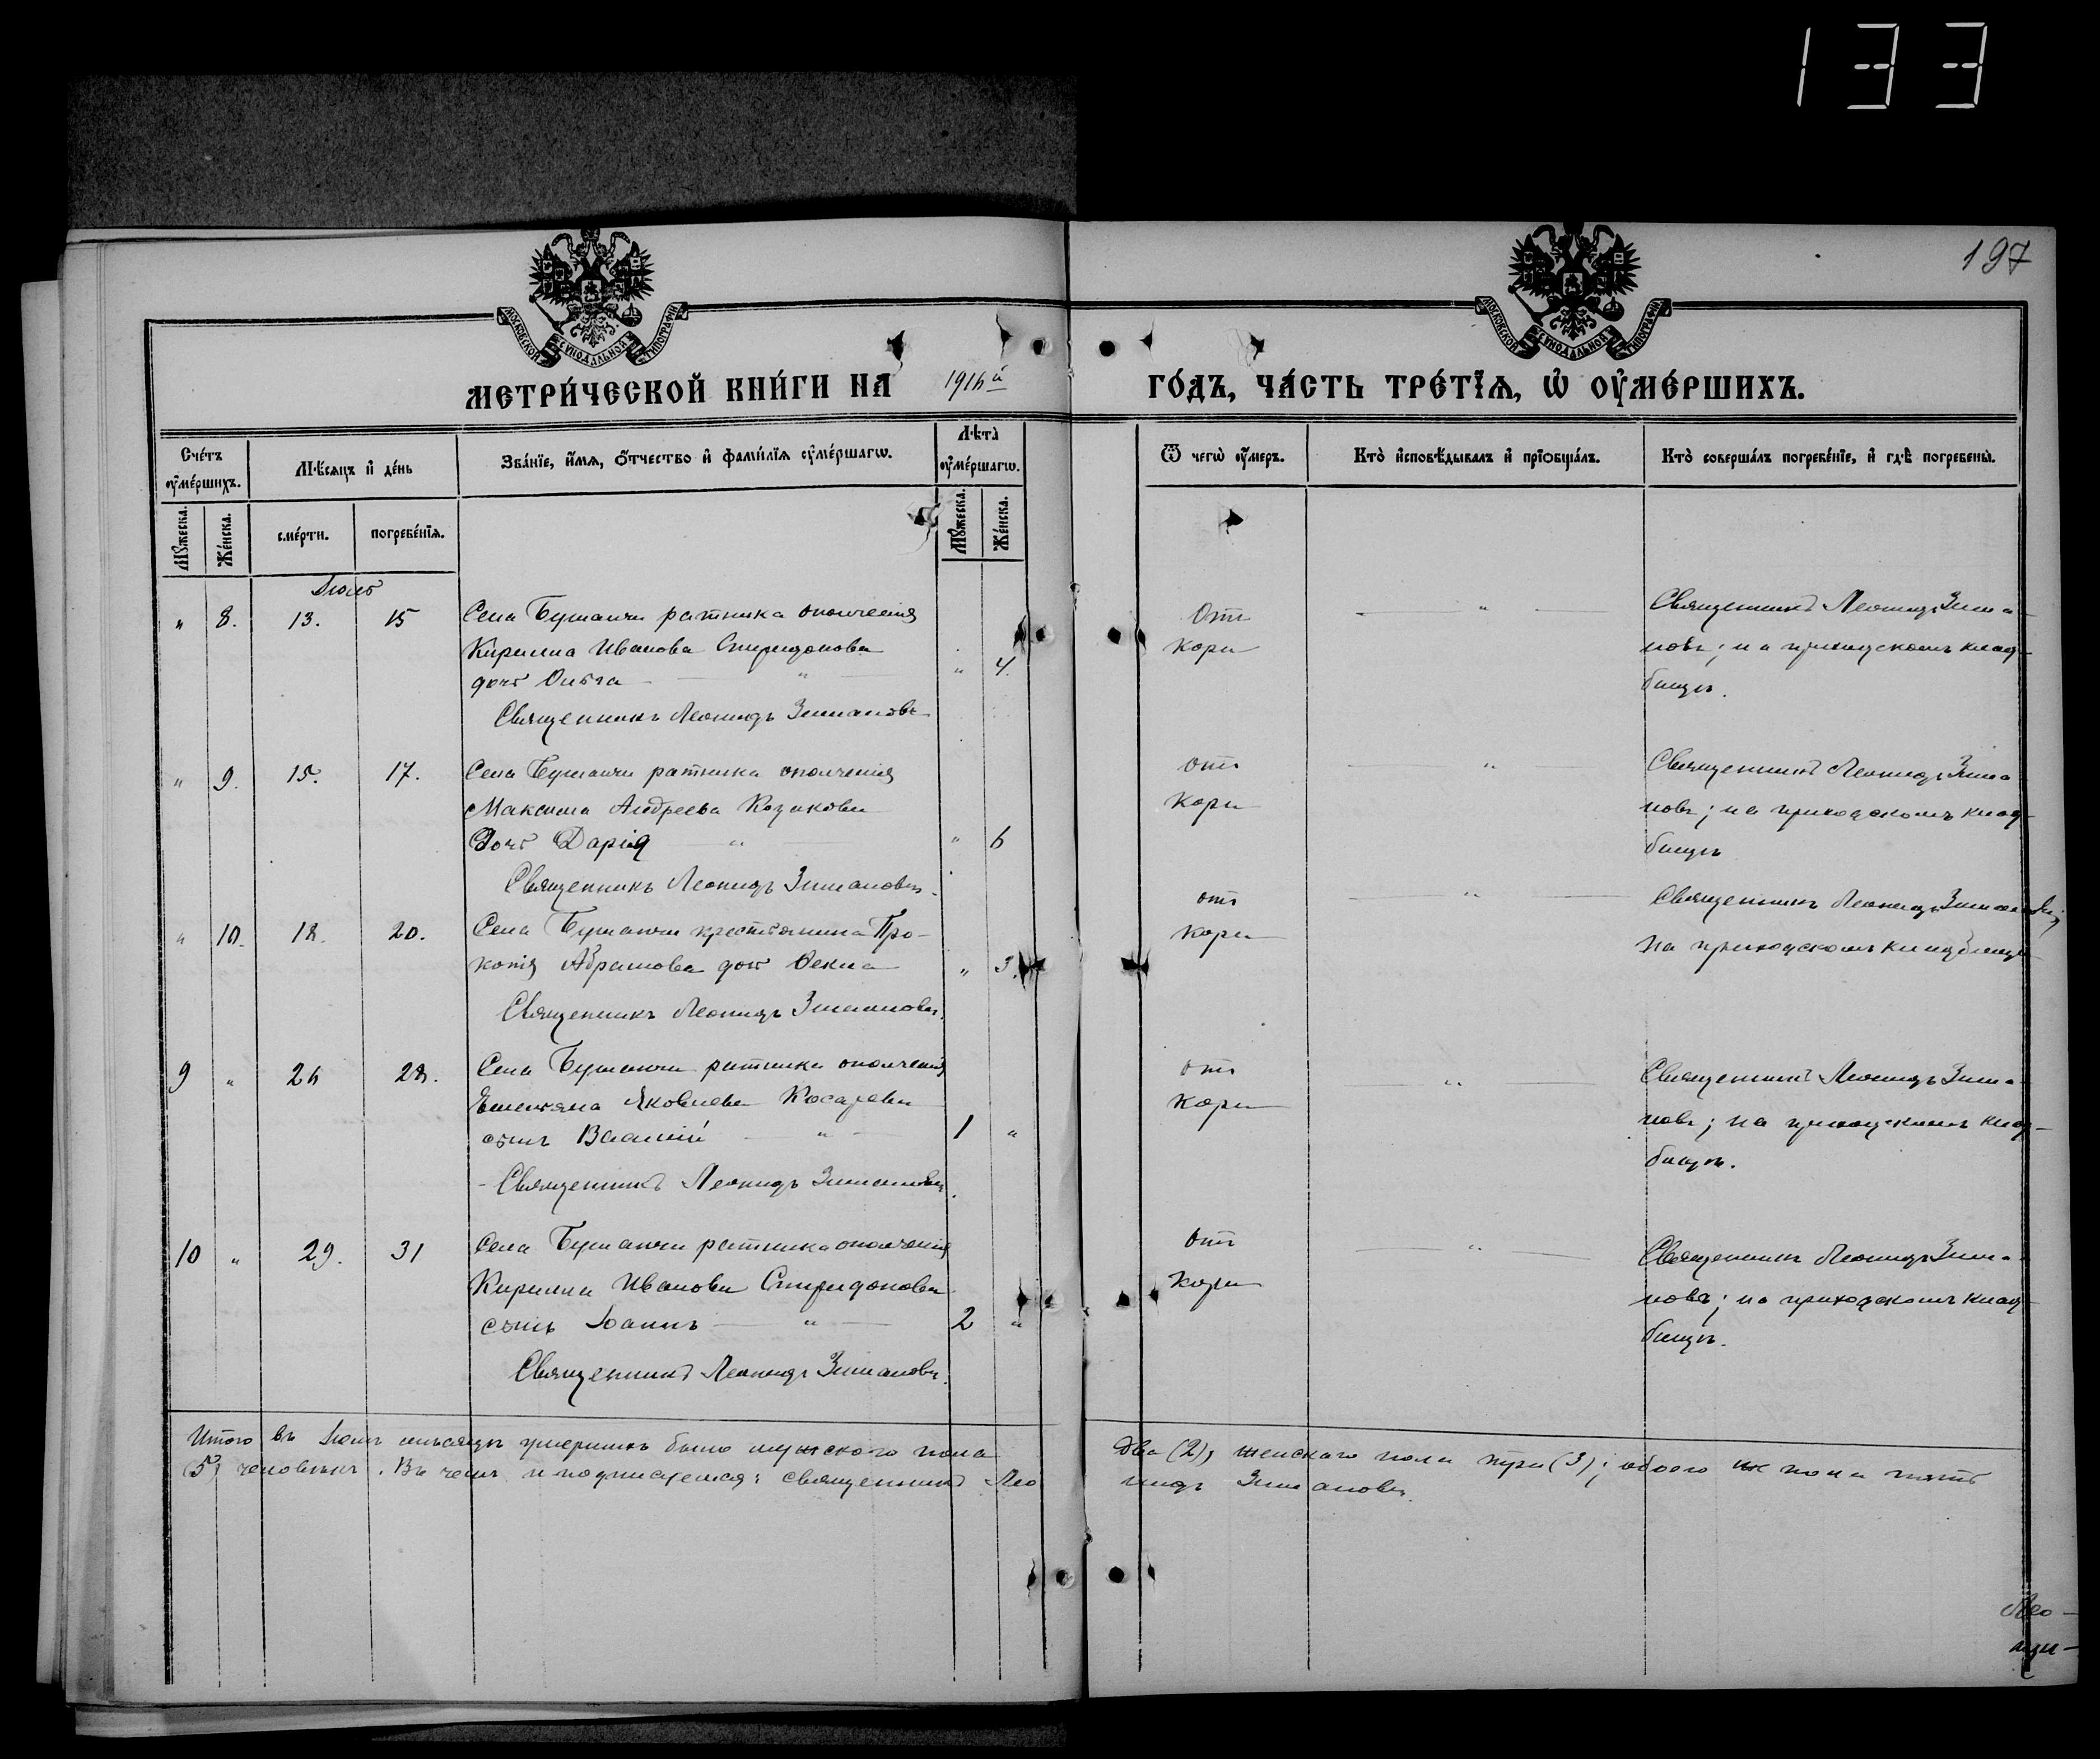 133
197
МОСКОВСКОЙ СѴНОДАЛЬНОЙ ТИПОГРАФІИ
МОСКОВСКОЙ СѴНОДАЛЬНОЙ ТИПОГРАФІИ
МЕТРИ́ЧЕСКОЙ КНИ́ГИ НА 1916й ГО́ДЪ, ЧА́СТЬ ТРЕ́ТЇѦ, Ѡ҆ ОУ҆МЕ́РШИХЪ.
Сче́тъ оу҆ме́ршихъ.
Мѣ́сяцъ и҆ де́нь
Зва́нїе, и҆́мя, ѻ҆́тчество и҆ фами́лїя оу҆ме́ршагѡ.
Лѣ́та̀ оу҆ме́ршагѡ.
Ѿ чегѡ̀ оу҆́меръ.
Кто̀ и҆сповѣ́дывалъ и҆ прїѡбща́лъ.
Кто̀ соверша́лъ погребе́нїе, и҆ гдѣ̀ погребены̀.
Мꙋ́жеска.
Же́нска.
сме́рти.
погребе́нїя.
Мꙋ́жеска.
Же́нска.
Іюль
" 8. 13. 15 Села Бушанчи ратника ополченія
Кирилла Иванова Спиридонова
дочь Ольга — " — " 4.
Священникъ Леонидъ Зимановъ
Отъ
кори
"
Священникъ Леонидъ Зима-
новъ; на приходскомъ клад-
бищѣ.
" 9. 15. 17. Села Бушанчи ратника ополченія
Максима Андреева Казакова
дочь Дарія — " — " 6
Священникъ Леонидъ Зимановъ.
отъ
кори
"
Священникъ Леонидъ Зима
новъ; на приходскомъ клад-
бищѣ
" 10. 18. 20. Села Бушанчи крестьянина Про-
копія Абрамова дочь Ѳекла " 3.
Священникъ Леонидъ Зимановъ.
отъ
кори
"
Священникъ Леонидъ Зимановъ;
на приходскомъ кладбищѣ
9 " 26 28. Села Бушанчи ратника ополченія
Емельяна Яковлева Косарева
сынъ Василій — " — 1 "
Священникъ Леонидъ Зимановъ.
отъ
кори
"
Священникъ Леонидъ Зима-
новъ; на приходскомъ клад-
бищѣ.
10 " 29. 31 Села Бушанчи ратника ополченія
Кирилла Иванова Спиридонова
сынъ Іоаннъ — " — 2 "
Священникъ Леонидъ Зимановъ.
отъ
кори
"
Священникъ Леонидъ Зима-
новъ; на приходскомъ клад-
бищѣ.
Итого въ Іюлѣ мѣсяцѣ умершихъ было мужскаго пола два (2), женскаго пола три (3); обоего их пола пять
(5) человѣкъ. Въ чемъ и подписуемся: священникъ Леонидъ Зимановъ.